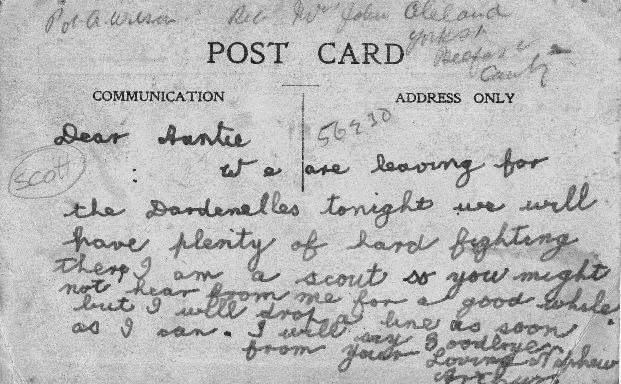 Pvt A. Wilson Rev. Mr John Cleland
York St
Belfast
POST CARD
COMMUNICATION ADDRESS ONLY
56230
Dear Auntie
scott
We are leaving for
the Dardenelles tonight we will
have plenty of hard fighting
there I am a scout so you might
not hear from me for a good while
but I will drop a line as soon
as I can. I will say Goodbye
from your Loving Nephew
Arthur